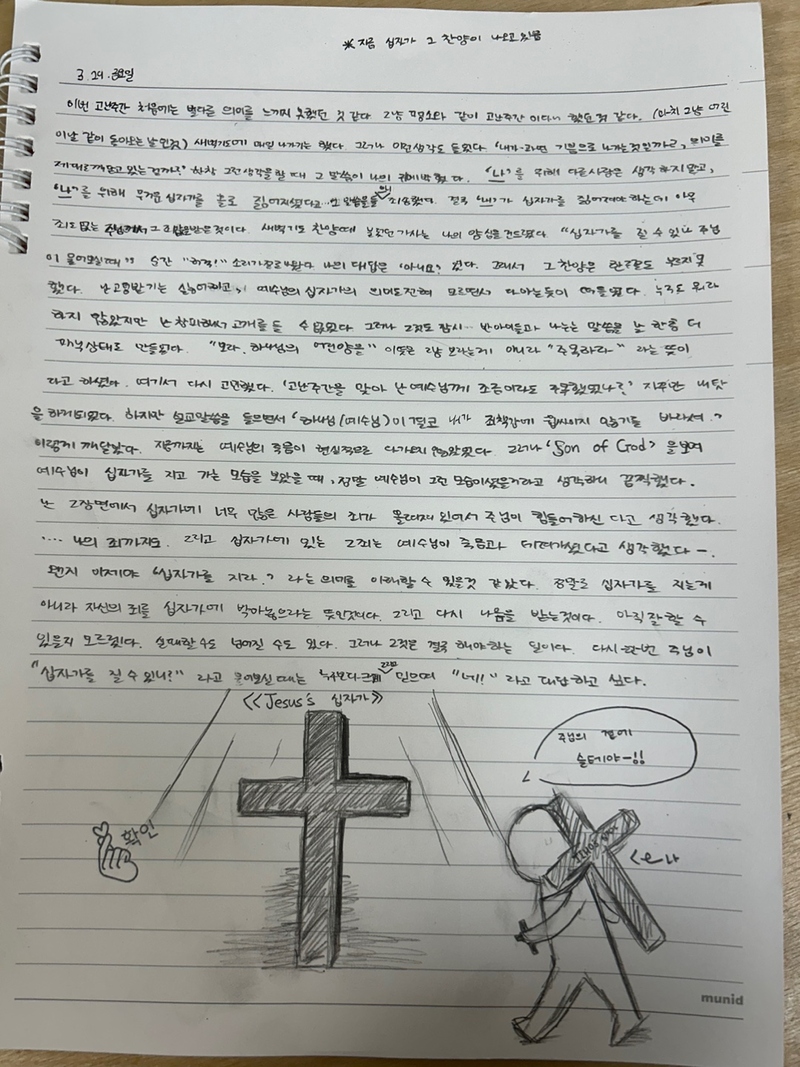 ※ 지금 십자가 그 찬양이 나오고 있음
3.29. 금요일
이번 고난주간 처음에는 별다를 의미를 느끼지 못했던 것 같다. 그냥 평소와 같이 고난주간이다니 했던것 같다. (마치 그냥 어린
이날 같이 돌아오는 날인것) 새벽기도에 매일 나가기는 했다. 그러나 이런생각도 들었다 '내가 과연 기쁨으로 나가는것일까?, 의미를
제대로 깨닫고 있는 걸까?' 한창 그런 생각을 할 때 그 말씀이 나의 귀에 박혔다. '나'를 위해 다른사람은 생각하지 말고,
'나'를 위해 무거운 십자가를 홀로 짊어지셨다고... 그 말씀을 들으니 죄송했다. 결국 '내'가 십자가를 짊어져야 하는데 아무
죄도 없는 주님께서 그 고난을 받은 것이다. 새벽기도 찬양때 불렀던 가사는 나의 양심을 건드렸다. "십자가를 질 수 있나 주님
이 물어보실때" 순간 "허걱!" 소리가 절로 나왔다 나의 대답은 '아니요'였다. 그래서 그 찬양은 한곡절도 부르지 못
했다. 난 고통받기는 싫어하고, 예수님의 십자가의 의미도 전혀 모르면서 다 아는듯이 떠들었다. 누구도 뭐라
하지 않았지만 난 창피해서 고개를 들 수 없었다. 그러나 그것도 잠시... 반아이들과 나누는 말씀을 난 한층 더
피닉상태로 만들었다. "보라, 하나님의 어린양을" 이 뜻은 그냥 보라는게 아니라 "주목하라" 라는 뜻이
라고 하셨다. 여기서 다시 고민했다. '고난주간을 맞아 난 예수님께 조금이라도 주목했었나?' 자꾸만 내 탓
을 하게되었다. 하지만 설교말씀을 들으면서 '하나님(예수님)이 결코 내가 죄책감에 휩싸이지 않기를 바라셔.'
이렇게 깨달았다. 지금까지는 예수님의 죽음이 현실적으로 다가오지 않았었다. 그러나 'Son of God' 을 보며
예수님이 십자가를 지고 가는 모습을 보았을 때, 정말 예수님이 그런 모습이셨을거라고 생각하니 끔찍했다.
난 그 장면에서 십자가에 너무 많은 사람들의 죄가 올려져 있어서 주님이 힘들어하신 다고 생각했다.
... 나의 죄까지도. 그리고 십자가에 있는 그 죄는 예수님이 죽음과 데려가셨다고 생각했다-.
왠지 이제야 "십자가를 지라." 라는 의미를 이해할 수 있을것 같았다. 정말로 십자가를 지는게
아니라 자신의 죄를 십자가에 박아놓으라는 뜻인것이다. 그리고 다시 나음을 받는것이다. 아직 잘 할 수
있을지 모르겠다. 실패할 수도 넘어질 수도 있다. 그러나 그것은 결국 해야하는 일이다. 다시 한번 주님이
"십자가를 질 수 있니?" 라고 물어보실 때는 누구보다 크게 믿으며 "네!!" 라고 대답하고 싶다.
<<Jesus's 십자가>>
주님의 곁에
설테야-!!
확인
<-나
munid